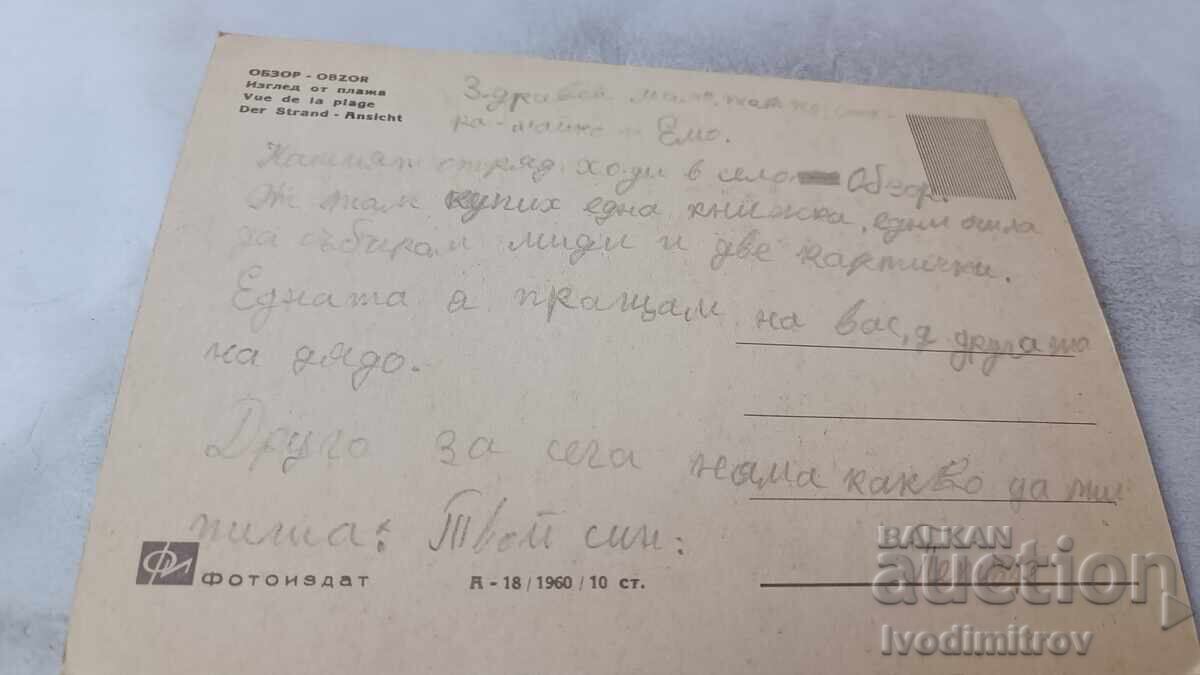 ОБЗОР - OBZOR
Изглед от плажа
Vue de la plage
Der Strand - Ansicht
Здравей
Емо.
отряд ходи в село Обзор.
там купих една книжка,
да събирам миди и две картички.
Едната а пращам на вас, а другата
на дядо.
Друго за сега няма какво да
пиша: Твой син:
ФИ ФОТОИЗДАТ
А - 18 / 1960 / 10 ст.
BALKAN
auction
Ivodimitrov